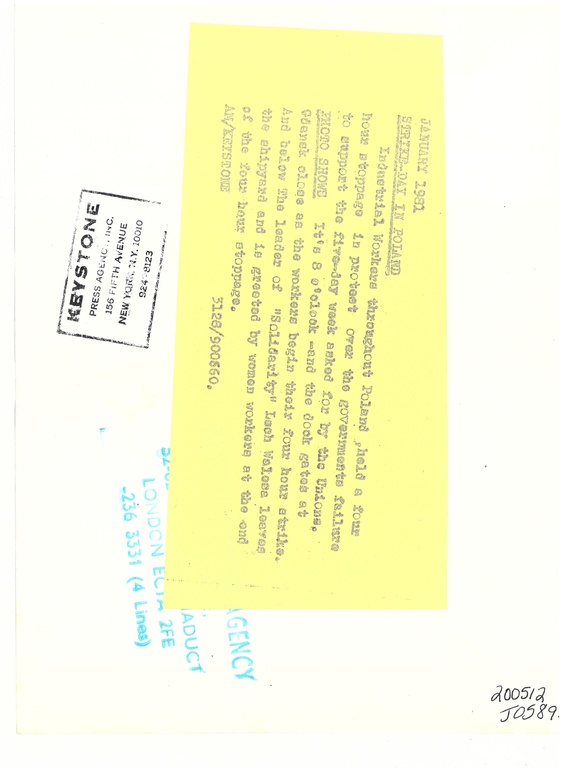 JANUARY 1981
STRIKE-DAY IN POLAND
Industrial Workers throughout Poland ,held a four
hour stoppage in protest over the governments failure
to support the five-day week asked for by the Unions.
PHOTO SHOWS It's 8 o'clock -and the dock gates at
Gdansk close as the workers begin their four hour strike.
And below The leader of "Solidarity" Lech Walesa leaves
the shipyard and is greeted by women workers at the end
of the four hour stoppage.
AM/KEYSTONE 3128/900860.
KEYSTONE
PRESS AGENCY INC.
156 FIFTH AVENUE
NEW YORK, N.Y. 10010
924-8123
AGENCY
ADUCT
LONDON EC1A 2FE
-236 3331 (4 Lines)
200512
J0589.